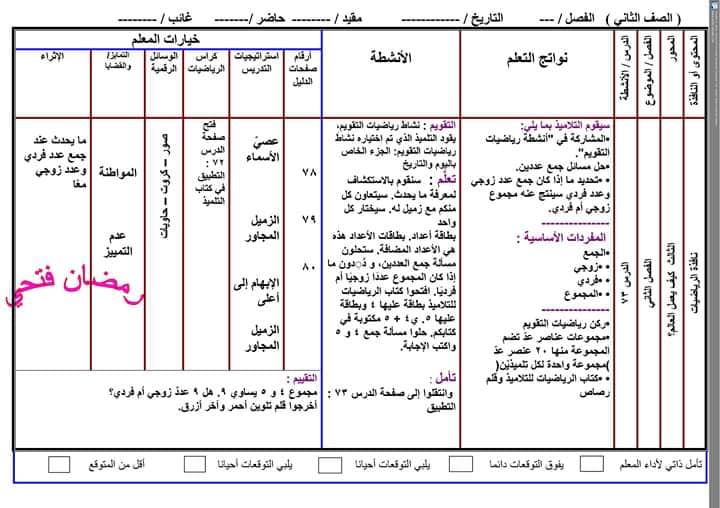 ( الصف الثاني )   الفصل / ---   التاريخ / ------------   مقيد / -------- حاضر /-------   غائب / --------
المحتوى أو النافذة
المحور
الفصل / الموضوع
الدرس / الأنشطة
نواتج التعلم
الأنشطة
خيارات المعلم
أرقام صفحات الدليل
استراتيجيات التدريس
كراس الرياضيات
الوسائل الرقمية
التمايز/ والقضايا
الإثراء
نافذة الرياضيات
الثالث كيف يعمل العالم؟
الفصل الثاني
الدرس ٧٣
سيقوم التلاميذ بما يلي:
•المشاركة في "أنشطة رياضيات
التقويم".
•حل مسائل جمع عددين.
•تحديد ما إذا كان جمع عدد زوجي
وعدد فردي سينتج عنه مجموع
زوجي أم فردي.
----------------
المفردات الأساسية :
•الجمع
• •زوجي
• •فردي
• •المجموع
----------------
•ركن رياضيات التقويم
•مجموعات عناصر عدّ تضم
المجموعة منها ٢٠ عنصر عدّ
)مجموعة واحدة لكل تلميذيْن(
• •كتاب الرياضيات للتلاميذ وقلم
رصاص
التقويم : نشاط رياضيات التقويم،
يقود التلميذ الذي تم اختياره نشاط
رياضيات التقويم: الجزء الخاص
باليوم والتاريخ
تعلُّم : سنقوم بالاستكشاف
لمعرفة ما يحدث. سيتعاون كل
منكم مع زميل له. سيختار كل
واحد
بطاقة أعداد. بطاقات الأعداد هذه
هي الأعداد المضافة. ستحلون
مسألة جمع العددين، و دُدون ما
إذا كان المجموع عددًا زوجيًا أم
فرديًا. افتحوا كتاب الرياضيات
للتلاميذ بطاقة عليها ٤ وبطاقة
عليها ٥. ي٤ + ٥ مكتوبة في
كتابكم. حلوا مسألة جمع ٤ و ٥
واكتب الإجابة.
تأمل :
وانتقلوا إلى صفحة الدرس ٧٣ :
التطبيق
٧٨
٧٩
٨٠
عصيّ
الأسماء
الزميل
المجاور
الإبهام إلى
أعلى
الزميل
المجاور
فتح
صفحة
الدرس
٧٢ :
التطبيق
في كتاب
التلميذ
صور – كروت – حاويات
المواطنة
عدم
التمييز
ما يحدث عند
جمع عدد فردي
وعدد زوجي
معًا
رمضان فتحي
التقييم :
مجموع ٤ و ٥ يساوي ٩. هل ٩ عددٌ زوجي أم فردي؟
أخرجوا قلم تلوين أحمر وآخر أزرق.
تأمل ذاتي لأداء المعلم   يفوق التوقعات دائما   يلبي التوقعات أحيانا   يلبي التوقعات أحيانا   أقل من المتوقع